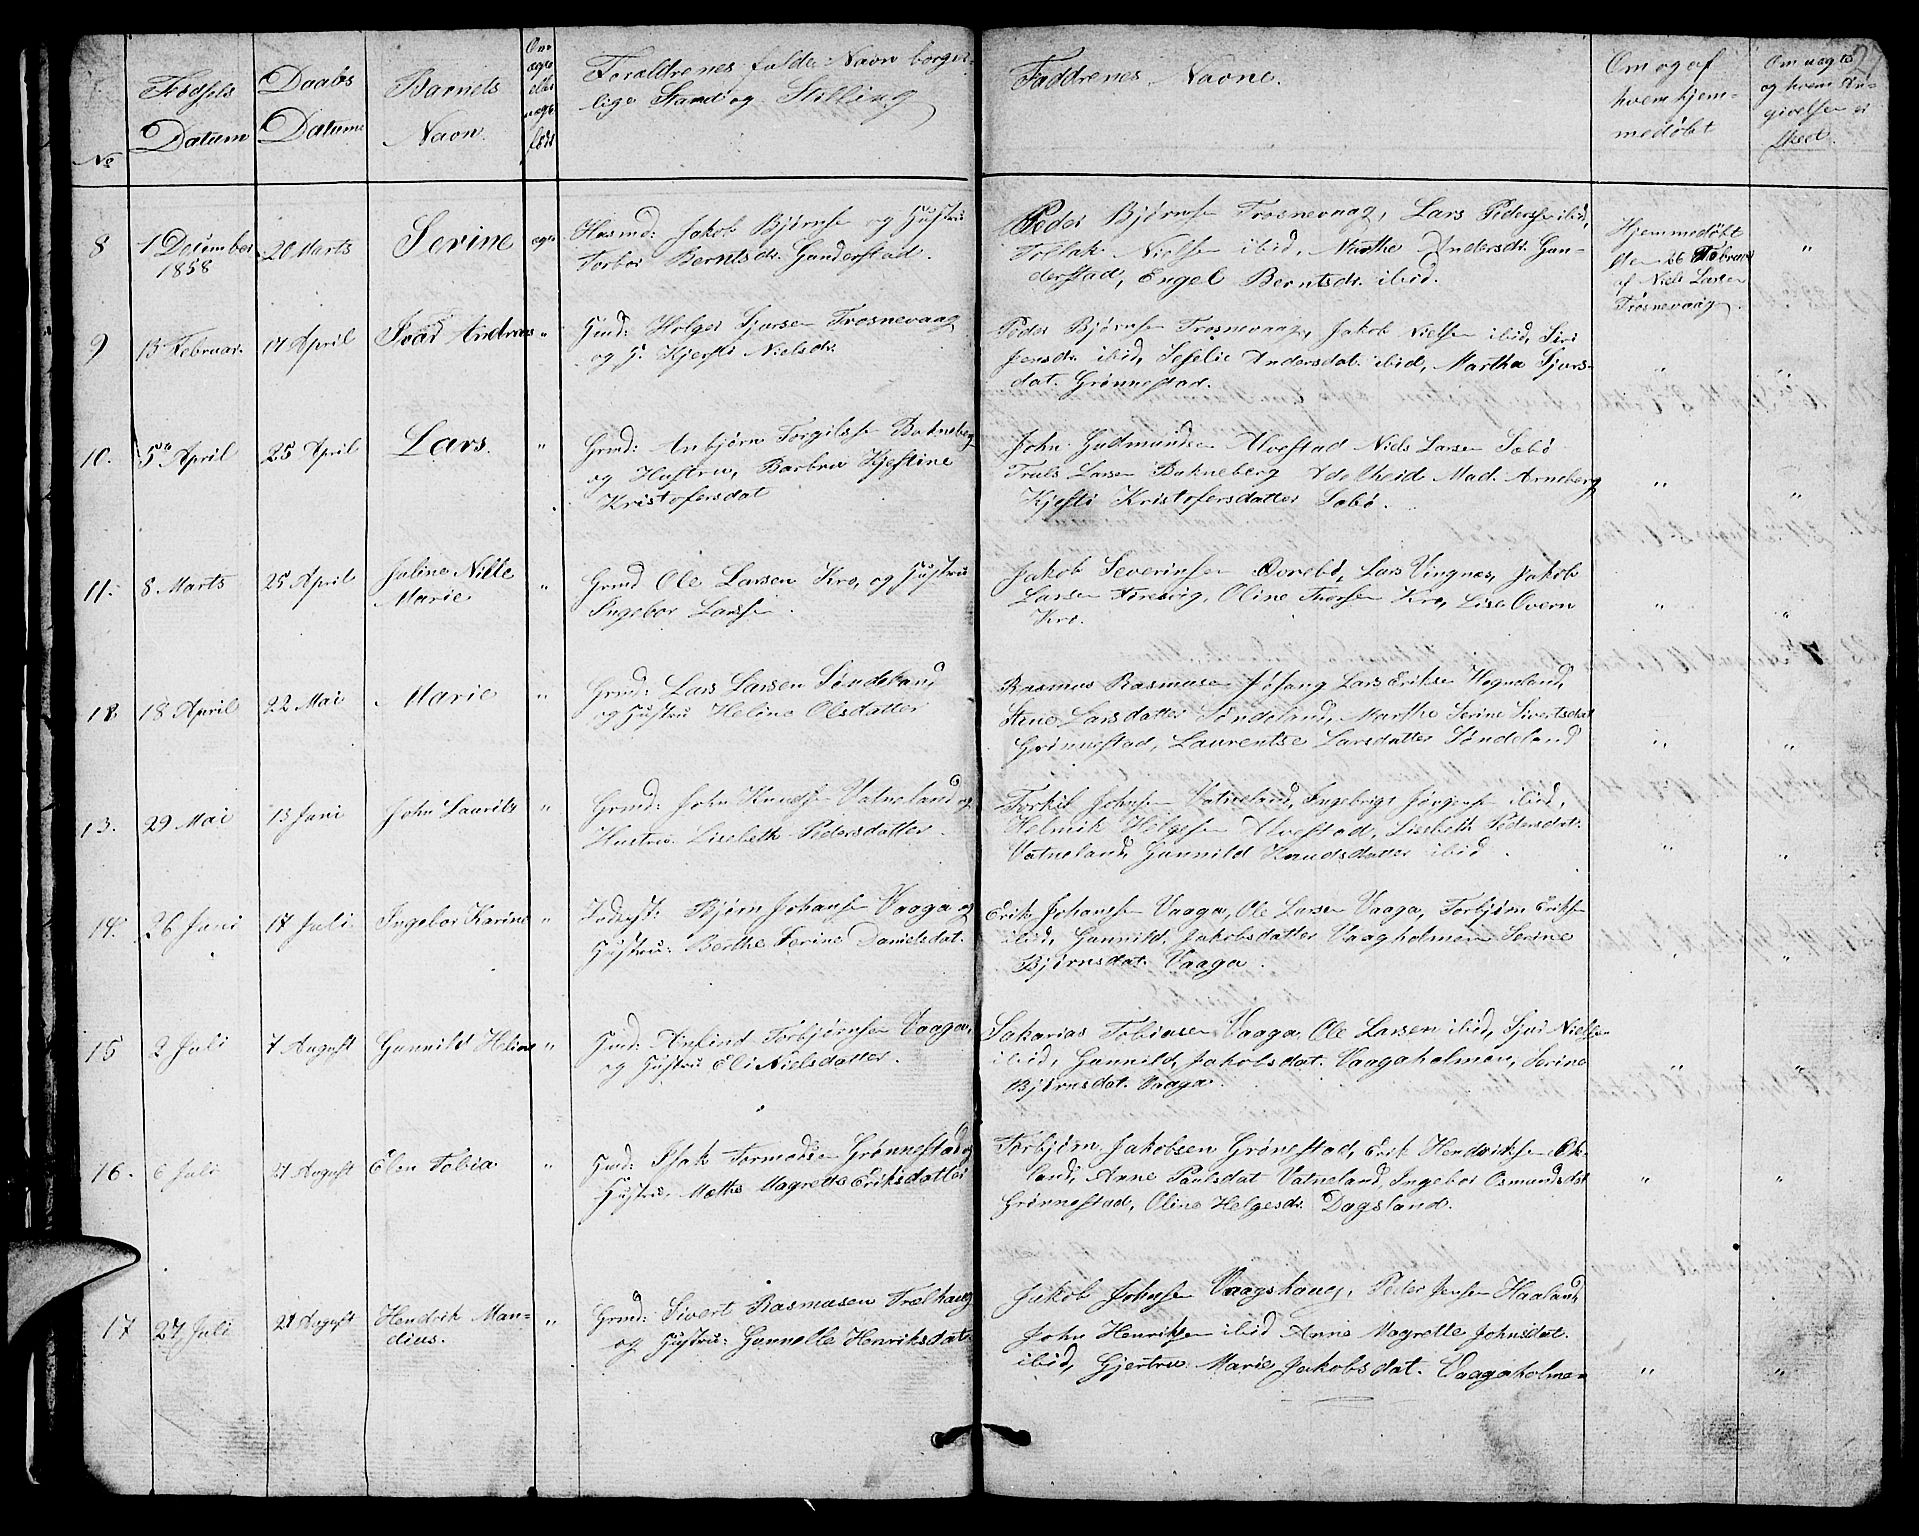 No
Fødsels Datum
Daabs Datum
Barnets Navn.
Om ægte eller uægte født
Forældrenes fulde Navn borger-
lige Stand og Stilling
Faddrenes Navne.
Om og af
hvem hjem-
medøbt
Om nogen
og hvem An-
givelsen er
skeet.
8
1 December
1858
20 Marts
Serine
ægte
Husmd: Jakob Bjørnsen og Hustru
Torbor Berntsdr. Gunderstad.
Peder Bjørnsen Trosnevaag, Lars Pedersen ibid,
Tollak Nielsen ibid, Marthe Andersdr. Gun-
derstad, Engel Berntsdr. ibid.
Hjemmedøbt
den 26 Februar
af Niels Larsen
Trosnevaag.
"
9
15 Februar.
17 April
Ivar Andreas
"
Gmd: Holger Sjursen Trosnevaag
og H. Kjersti Nielsdr.
Peder Bjørnsen Trosnevaag, Jakob Nielsen ibid, Siri
Jensdr. ibid, Sesilie Andersdat. ibid, Martha Sjurs-
dat. Grønnestad.
"
"
10.
5 April
25 April
Lars.
"
Grmd: Anbjørn Torgilssen Bokneberg
og Hustru, Barbru Kjestine
Kristofersdat
John Gudmundsen Alvestad Niels Larsen Sæbø
Truls Larsen Bokneberg Adelheid Mad. Arneberg
Kjesti Kristofersdatter Sæbø.
"
"
11.
8 Marts
25 April
Jaline Nille
Marie
"
Grmd Ole Larsen Kro, og Hustru
Ingebor Larsen.
Jakob Severinsen Øvrebø, Lars Vingnes, Jakob
Larsen Arevig, Oline Thorsen Kro, Lise Overn
Kro.
"
"
12.
18 April
22 Mai
Marie
"
Grmd: Lars Larsen Søndeland
og Hustru Heline Olsdatter
Rasmus Rasmusen Jøsang Lars Eriksen Hogneland,
Stene Larsdatter Søndeland, Marthe Serine Sivertsdat
Grønnestad, Laurentse Larsdatter Søndeland
"
"
13.
29 Mai
13 Juni
John Laurits
"
Grmd: John Knudsen Vatneland og
Hustru Lisebeth Pedersdatter.
Torkil Johnsen Vatneland, Ingebrigt Jørgensen ibid,
Helmik Helgesen Alvestad, Lisebeth Pedersdat.
Vatneland, Gunnild Knudsdatter ibid.
"
"
14.
26 Juni
17 Juli.
Ingebor Karine
"
Inderst: Bjørn Johansen Vaaga og
Hustru: Berthe Serine Danielsdat.
Erik Johansen Vaaga, Ole Larsen Vaaga, Torbjørn Eriksen
ibid, Gunnild Jakobsdatter Vaagholmen Serine
Bjørnsdat. Vaaga.
"
"
15
2 Juli
7 August
Gunnild Heline
"
Gmd: Anfind Torbjørnsen Vaaga,
og Hustru Eli Nielsdatter.
Sakarias Tobiasen Vaaga, Ole Larsen ibid, Sjur Nielsen
ibid, Gunnild Jakobsdat. Vaagaholmen, Serine
Bjørnsdat. Vaaga.
"
"
16.
6 Juli
27 August
Elen Tobia
"
Gmd: Isak Tormodsen Grønnestad og
Hustru, Mæthe Magrette Eriksdatter
Torbjørn Jakobsen Grønestad, Erik Hendriksen Øk-
land, Anne Paulsdat Vatneland, Ingebor Osmundsdat
Grønnestad, Oline Helgesdr. Dagsland.
"
"
17
27 Juli
28 August
Hendrik Man-
dius.
"
Grmd: Sivert Rasmusen Trælhaug
og Hustru: Gunnelle Henriksdat.
Jakob Johnsen Vaagshaug, Peder Jensen Haaland,
John Henriksen ibid Anne Magrette Johnsdat.
ibid, Gjertru Marie Jakobsdat. Vaagaholmen
"
"